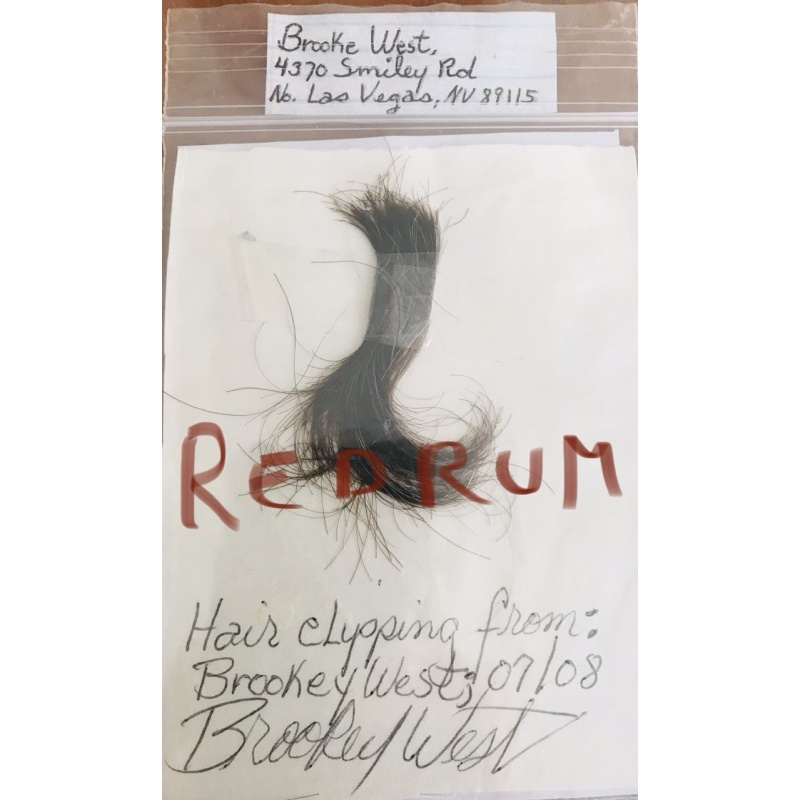 Brooke West,
4370 Smiley Rd
No. Las Vegas, NV 89115
REDRUM
Hair clypping from:
Brookey West; 07/08
Brookey West